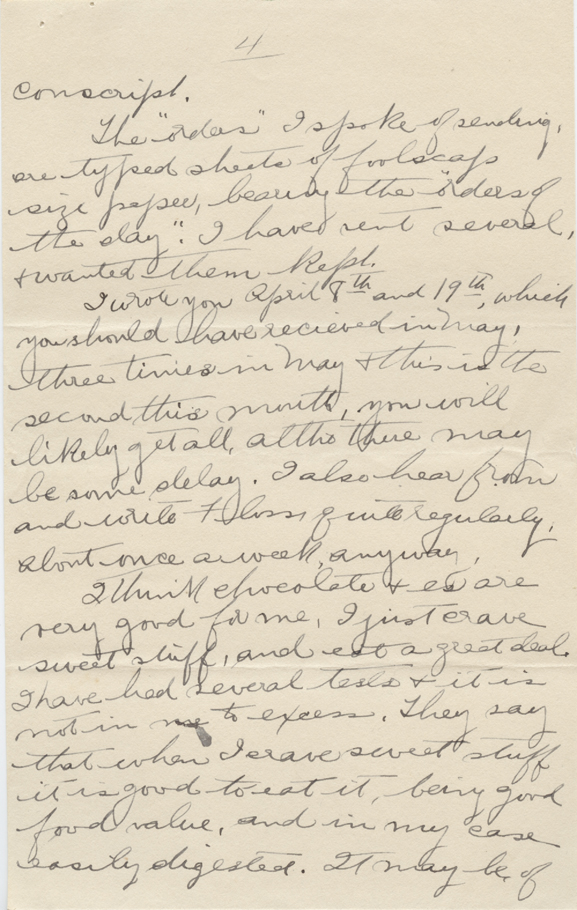 4
conscript.
The "orders" I spoke of sending,
are typed sheets of foolscap
size paper, bearing the "orders of
the day". I have sent several,
& wanted them kept.
I wrote you April 8th and 19th, which
you should have recieved in May,
three times in May & this is the
second this month, you will
likely get all, altho there may
be some delay. I also hear from
and write Floss quite regularly,
about once a week, anyway.
I think chocolate & etc are
very good for me, I just crave
sweet stuff, and eat a great deal.
I have had several tests & it is
not in me to excess. They say
that when I crave sweet stuff
it is good to eat it, being good
food value, and in my case
easily digested. It may be of